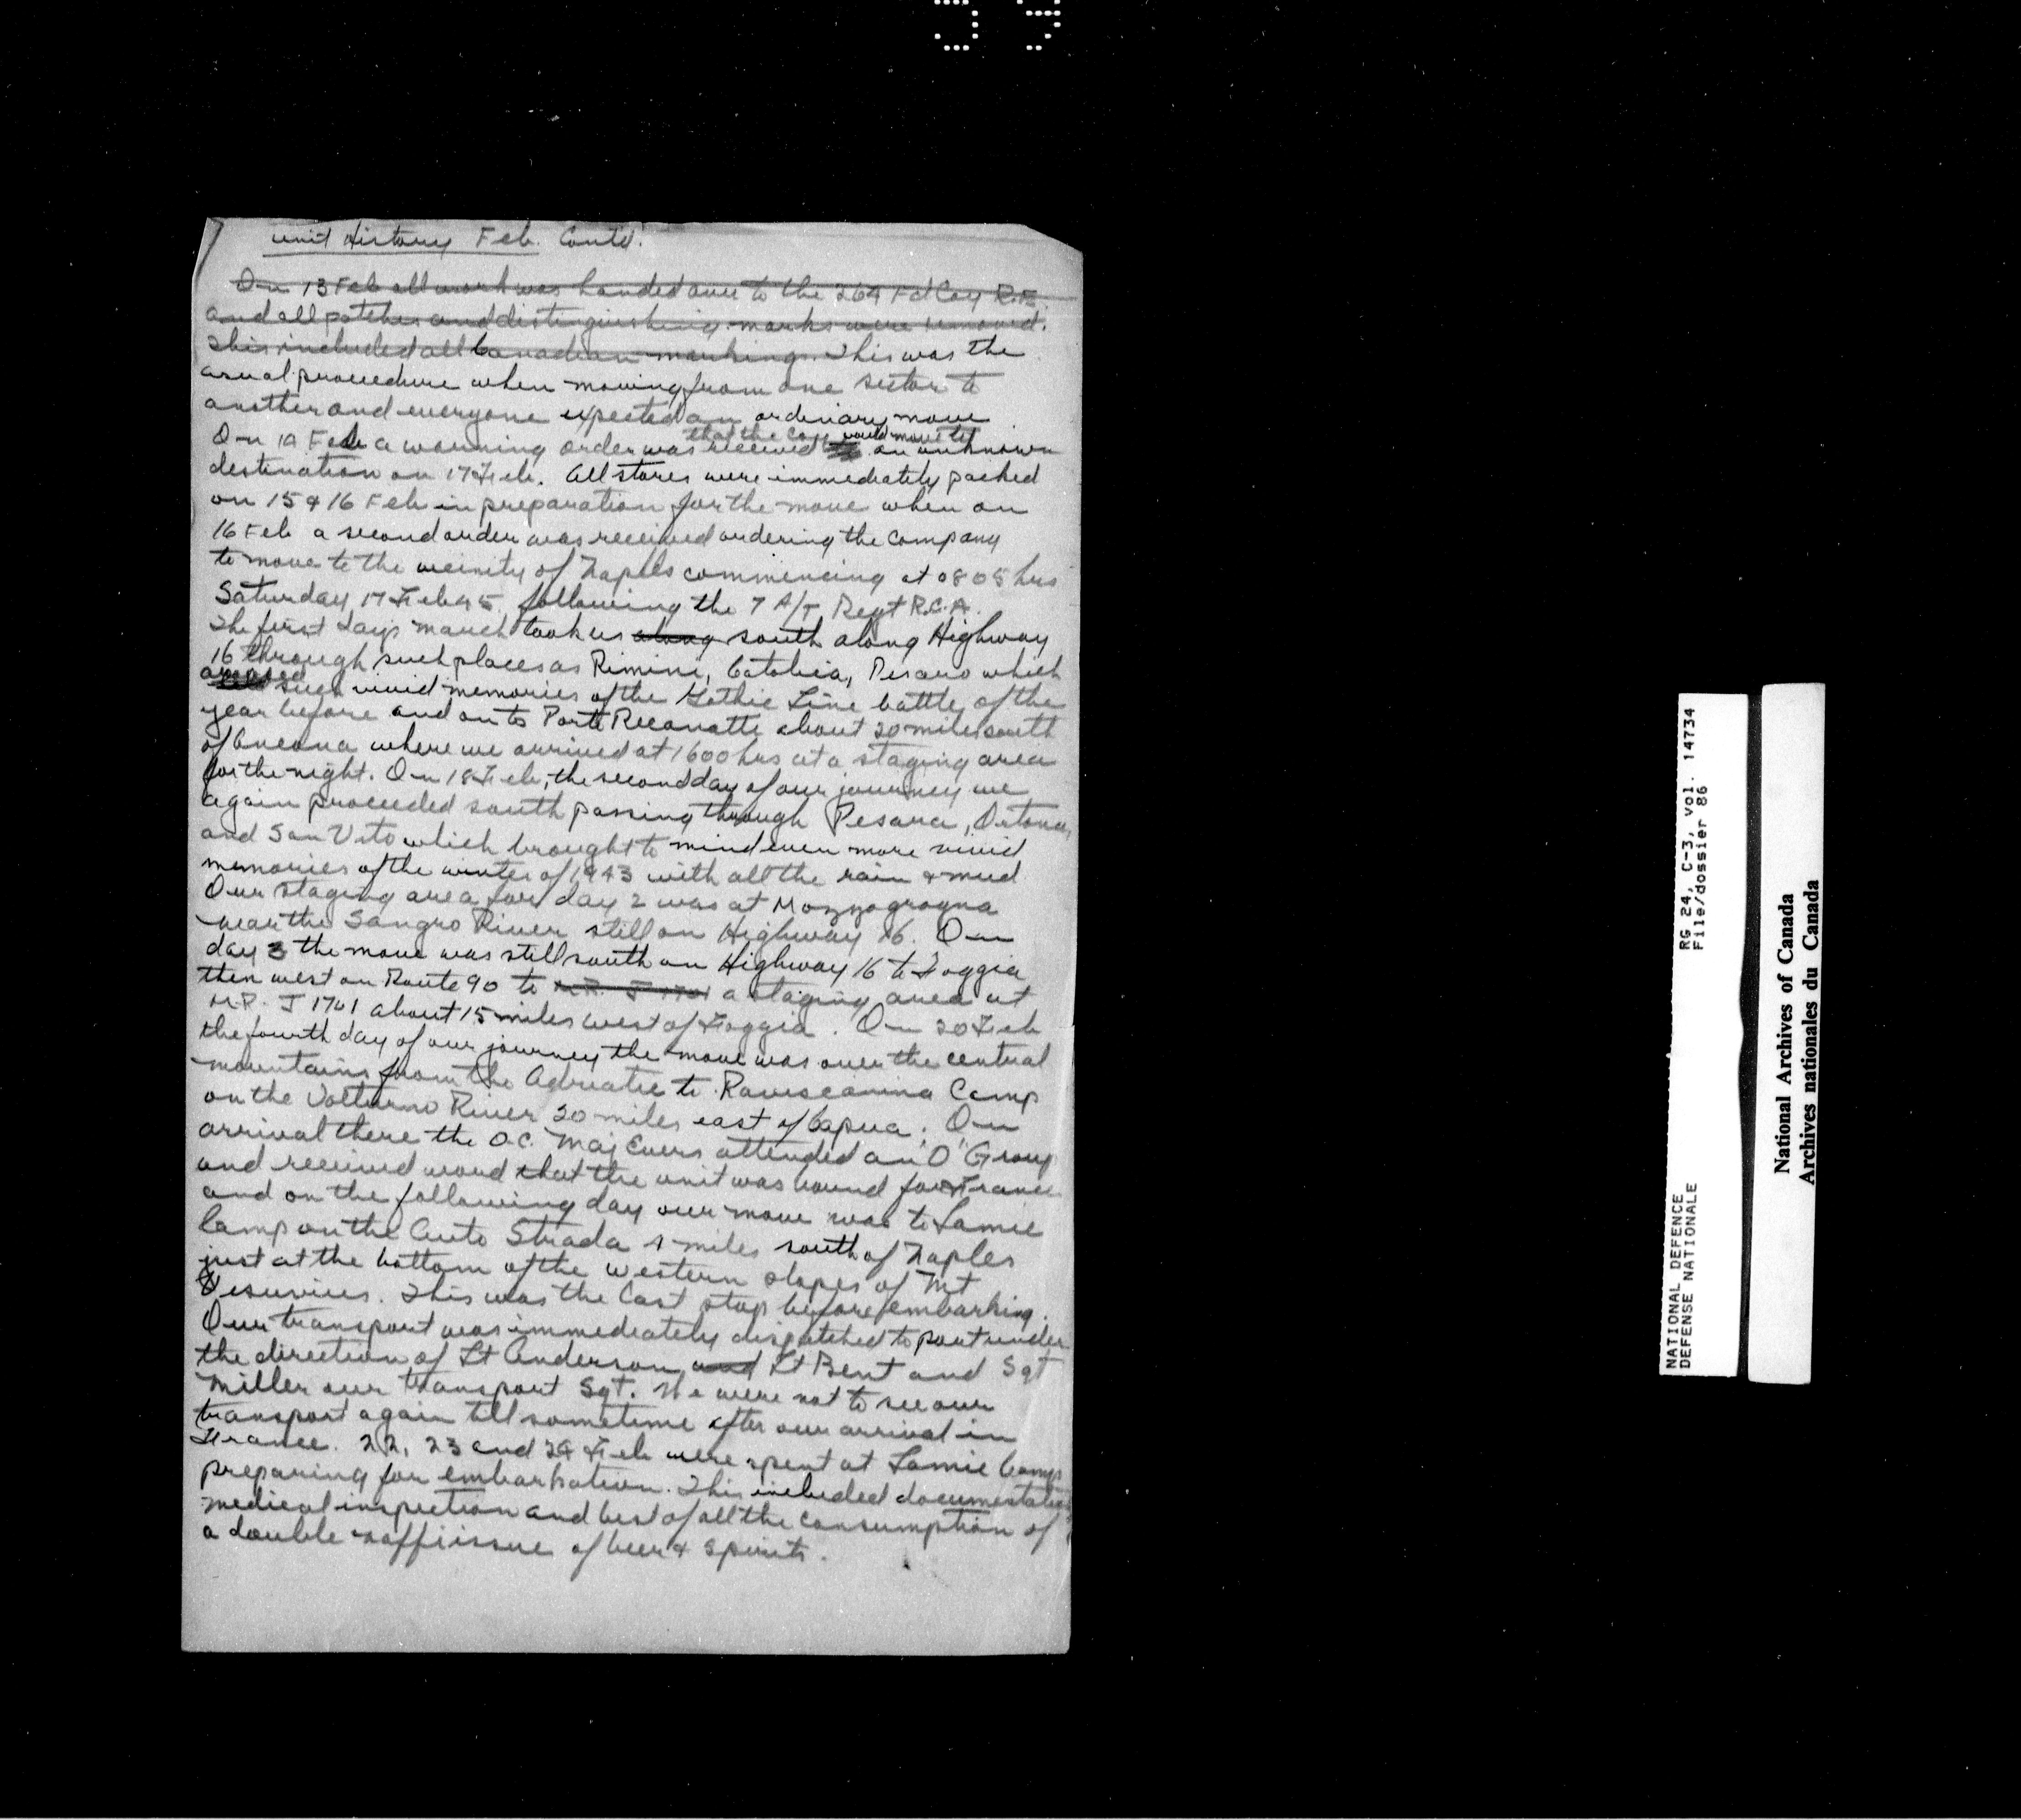 Unit History Feb. Contd.
On 13 Feb all work was handed over to the 264 Fd Coy R.E.
and all patches and distinguishing marks were removed.
This included all Canadian markings. This was the
usual procedure when moving from one sector to
another and everyone expected an ordinary move
that the Coy would move to
On 14 Feb a warning order was received an unknown
destination on 17 Feb. All stores were immediately packed
on 15 & 16 Feb in preparation for the move when on
16 Feb a second order was received ordering the company
to move to the vicinity of Naples commencing at 0805 hrs
Saturday 17 Feb 45 following the 7 A/T Regt R.C.A.
The first days march took us along south along Highway
16 through such places as Rimini, Catolica, Pesaro which
aroused such vivid memories of the Gothic Line battle of the
year before and on to Porto Recanatti about 20 miles south
of Ancona where we arrived at 1600 hrs at a staging area
for the night. On 18 Feb, the second day of our journey we
again proceeded south passing through Pesara, Ortona,
and San Vito which brought to mind even more vivid
memories of the winter of 1943 with all the rain & mud
Our staging area for day 2 was at Mozzogrogna
near the Sangro River still on Highway 16. On
day 3 the move was still south on Highway 16 to Foggia
then west on Route 90 to M.R. J 1701 a staging area at
M.R. J 1701 about 15 miles west of Foggia. On 20 Feb
the fourth day of our journey the move was over the central
mountains from the Adriatic to Raviscanina Camp
on the Volturno River 20 miles east of Capua. On
arrival there the O.C. Maj Evers attended an "O" Group
and received word that the unit was bound for France
and on the following day our move was to Lamie
Camp on the Auto Strada 4 miles south of Naples
just at the bottom of the western slopes of Mt
Vesuvius. This was the last stop before embarking.
Our transport was immediately dispatched to port under
the direction of Lt Anderson and Lt Bent and Sgt
Miller our transport Sgt. We were not to see our
transport again till sometime after our arrival in
France. 22, 23 and 24 Feb were spent at Lamie Camp
preparing for embarkation. This included documentation
medical inspection and best of all the consumption of
a double naffi issue of beer & spirits.
NATIONAL DEFENCE RG 24, C-3, vol. 14734
DEFENSE NATIONALE File/dossier 86
National Archives of Canada
Archives nationales du Canada